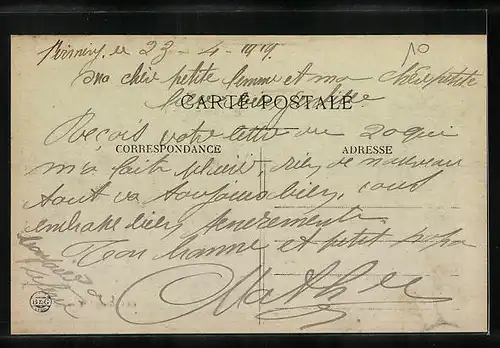 le 23-4-1919
10
ma cher petite femme et ma cher petite
fille
CARTE POSTALE
Reçois votre lettre du 20 qui
CORRESPONDANCE
ADRESSE
ma fait plaisir, rien de nouveau
tout va toujours bien, vous
embrasse bien tendrement.
Ton homme et petit papa
Mathieu
BEG